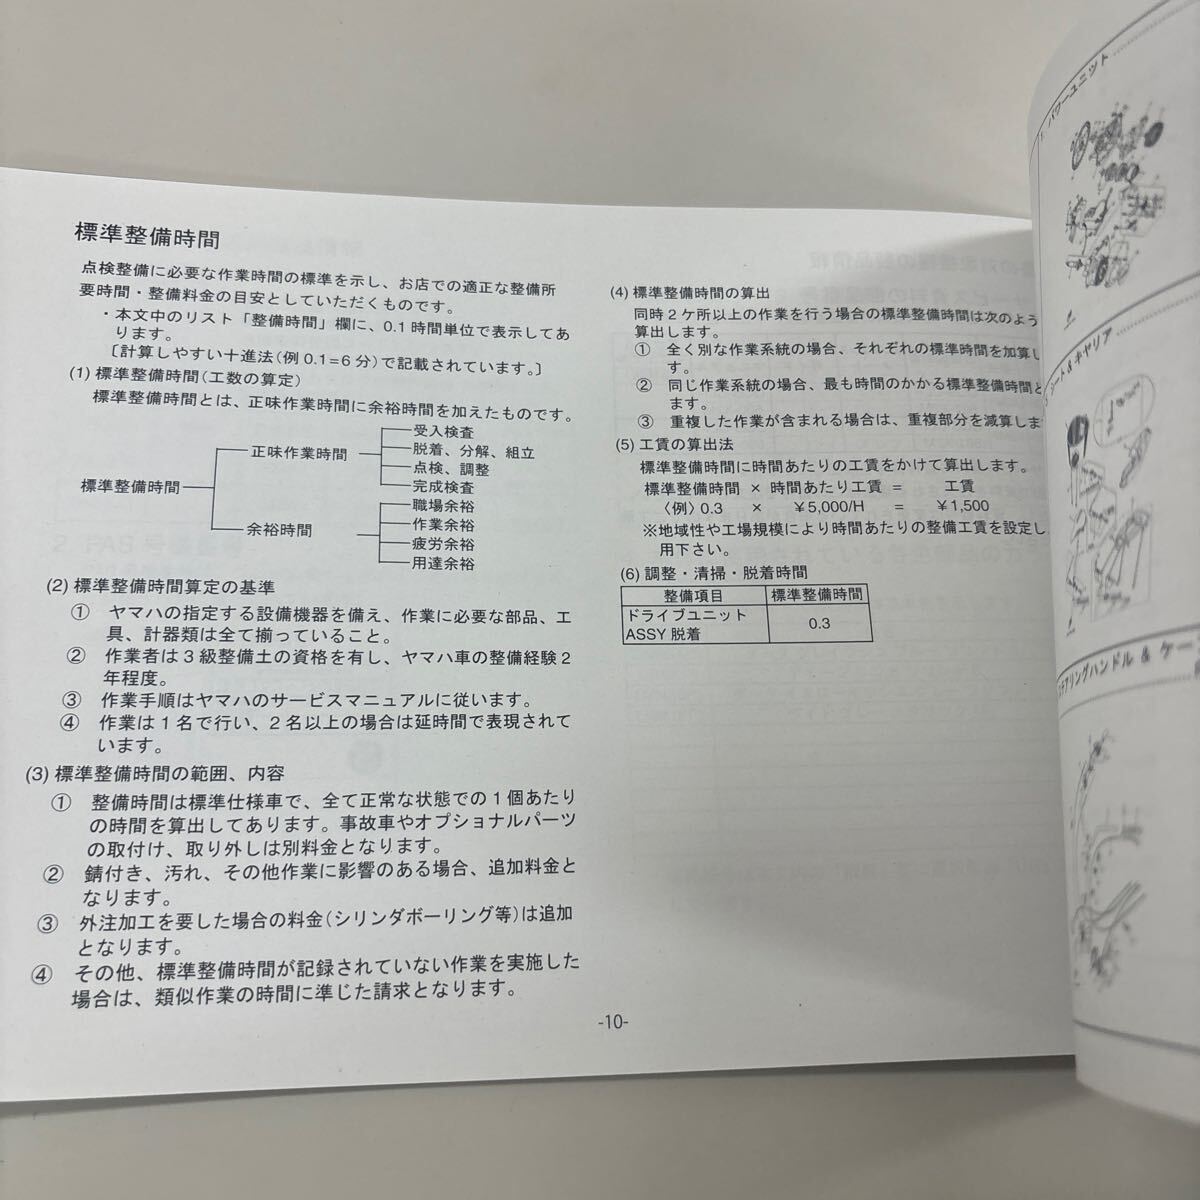 標準整備時間
点検整備に必要な作業時間の標準を示し、お店での適正な整備所
要時間・整備料金の目安としていただくものです。
・本文中のリスト「整備時間」欄に、0.1時間単位で表示してあ
ります。
〔計算しやすい十進法(例 0.1=6 分)で記載されています。〕
(1) 標準整備時間(工数の算定)
標準整備時間とは、正味作業時間に余裕時間を加えたものです。
標準整備時間
正味作業時間
受入検査
脱着、分解、組立
点検、調整
完成検査
余裕時間
職場余裕
作業余裕
疲労余裕
用達余裕
(2) 標準整備時間算定の基準
① ヤマハの指定する設備機器を備え、作業に必要な部品、工
具、計器類は全て揃っていること。
② 作業者は3級整備士の資格を有し、ヤマハ車の整備経験2
年程度。
③ 作業手順はヤマハのサービスマニュアルに従います。
④ 作業は1名で行い、2名以上の場合は延時間で表現されて
います。
(3) 標準整備時間の範囲、内容
① 整備時間は標準仕様車で、全て正常な状態での1個あたり
の時間を算出してあります。事故車やオプショナルパーツ
の取付け、取り外しは別料金となります。
② 錆付き、汚れ、その他作業に影響のある場合、追加料金と
なります。
③ 外注加工を要した場合の料金(シリンダボーリング等)は追加
となります。
④ その他、標準整備時間が記録されていない作業を実施した
場合は、類似作業の時間に準じた請求となります。
(4) 標準整備時間の算出
同時2ケ所以上の作業を行う場合の標準整備時間は次のよう
算出します。
① 全く別な作業系統の場合、それぞれの標準時間を加算し
す。
② 同じ作業系統の場合、最も時間のかかる標準整備時間と
ます。
③ 重複した作業が含まれる場合は、重複部分を減算しま
(5) 工賃の算出法
標準整備時間に時間あたりの工賃をかけて算出します。
標準整備時間 × 時間あたり工賃 = 工賃
〈例〉0.3 × ¥5,000/H = ¥1,500
※地域性や工場規模により時間あたりの整備工賃を設定し
用下さい。
(6) 調整・清掃・脱着時間
整備項目 標準整備時間
ドライブユニット
ASSY 脱着
0.3
-10-
パワーユニット
シート & キャリア
ステアリングハンドル & ケー